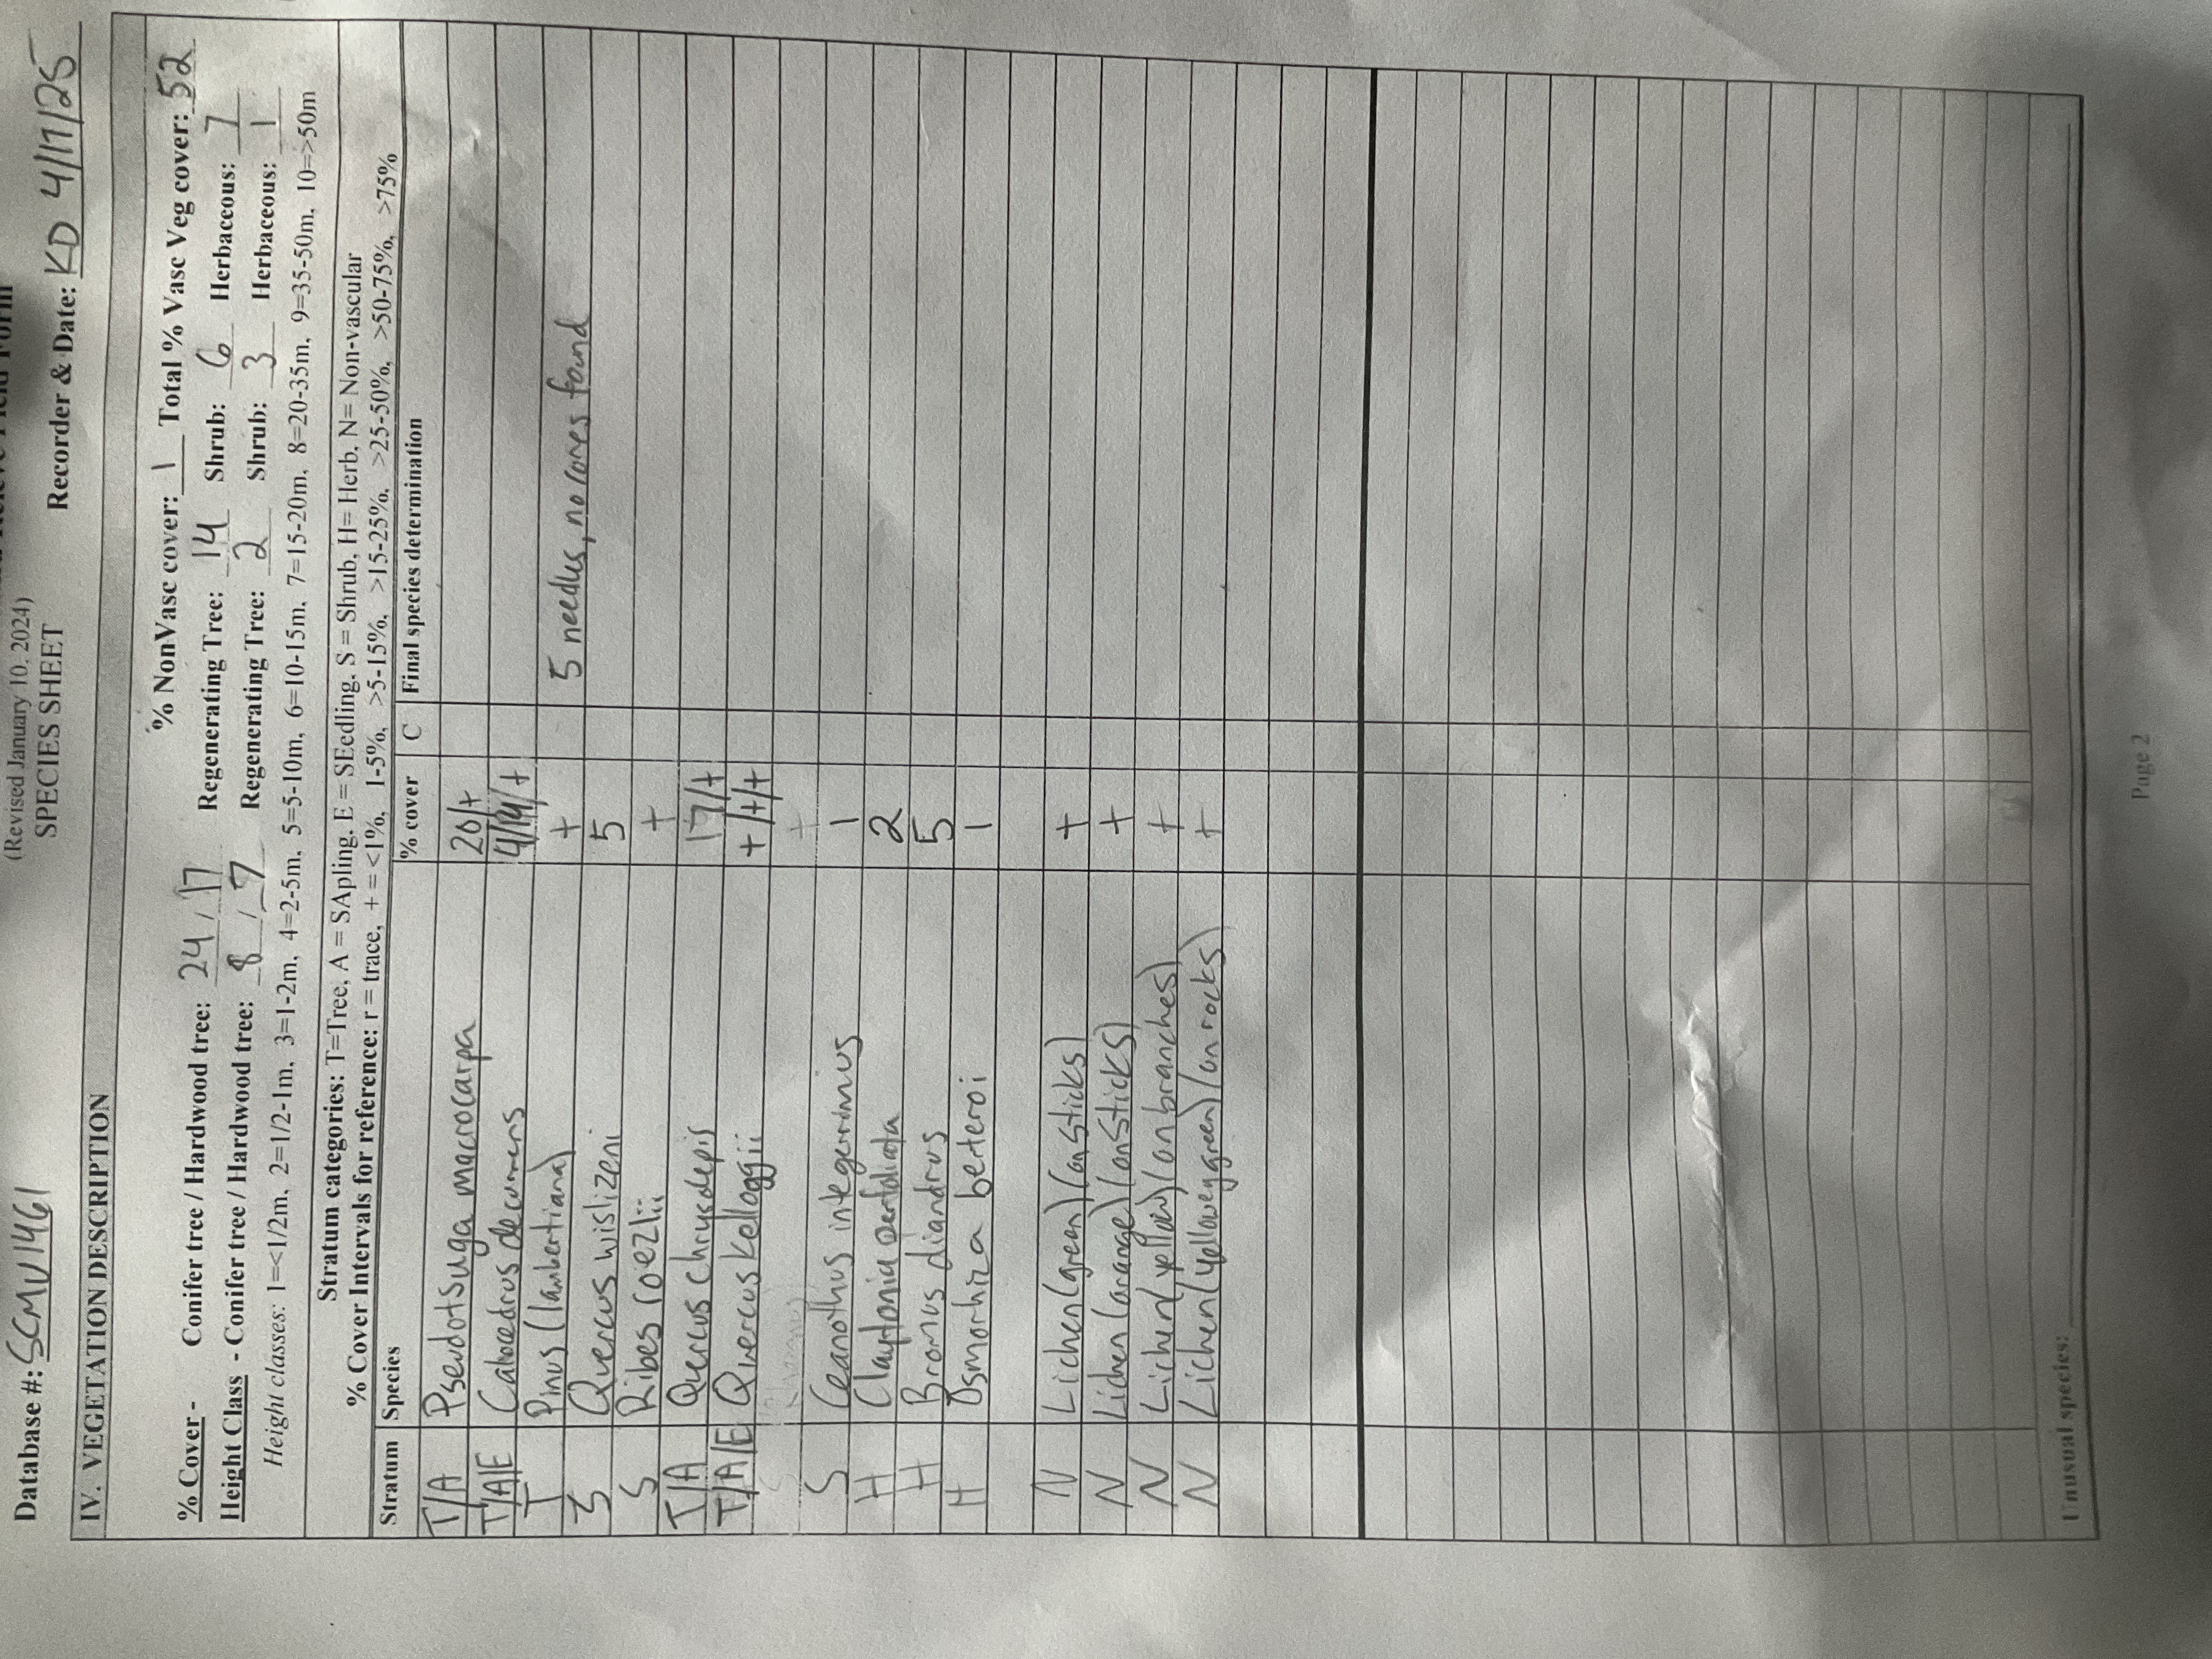 (Revised January 10, 2024)
SPECIES SHEET
Database #: SCMV1461 Recorder & Date: KD 4/17/25
IV. VEGETATION DESCRIPTION
% NonVasc cover: 1 Total % Vasc Veg cover: 52
% Cover - Conifer tree / Hardwood tree: 24 / 17 Regenerating Tree: 14 Shrub: 6 Herbaceous: 7
Height Class - Conifer tree / Hardwood tree: 8 / 7 Regenerating Tree: 2 Shrub: 3 Herbaceous: 1
Height classes: 1=<1/2m, 2=1/2-1m, 3=1-2m, 4=2-5m, 5=5-10m, 6=10-15m, 7=15-20m, 8=20-35m, 9=35-50m, 10=>50m
Stratum categories: T=Tree, A = SApling, E = SEedling, S = Shrub, H= Herb, N= Non-vascular
% Cover Intervals for reference: r = trace, + = <1%, 1-5%, >5-15%, >15-25%, >25-50%, >50-75%, >75%
Stratum Species % cover C Final species determination
T/A Pseudotsuga macrocarpa 20/+
T/A/E Calocedrus decurrens 4/14/+
T Pinus (lambertiana) + 5 needles, no cones found
S Quercus wislizeni 5
S Ribes roezlii +
T/A Quercus chrysolepis 17/+
T/A/E Quercus kelloggii +/+/+
S +
S Ceanothus integerrimus 1
H Claytonia perfoliata 2
H Bromus diandrus 5
H Osmorhiza berteroi 1
N Lichen (green) (on sticks) +
N Lichen (orange) (on sticks) +
N Lichen (yellow) (on branches) +
N Lichen (yellow green) (on rocks) +
Unusual species:
Page 2